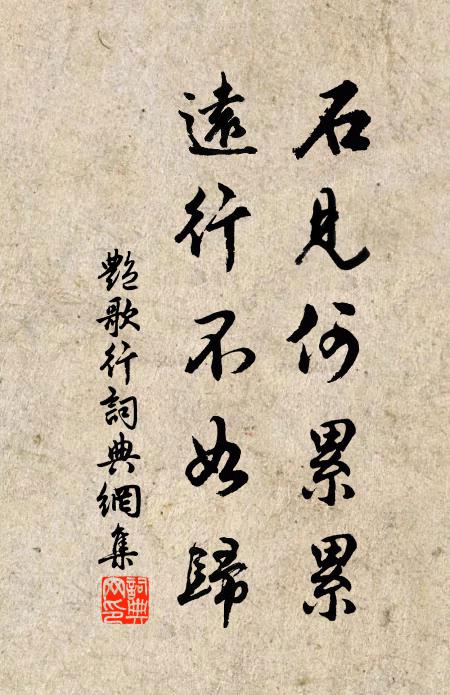 石見何累累
遠行不如歸
艷歌行詞典網集
詞典網印